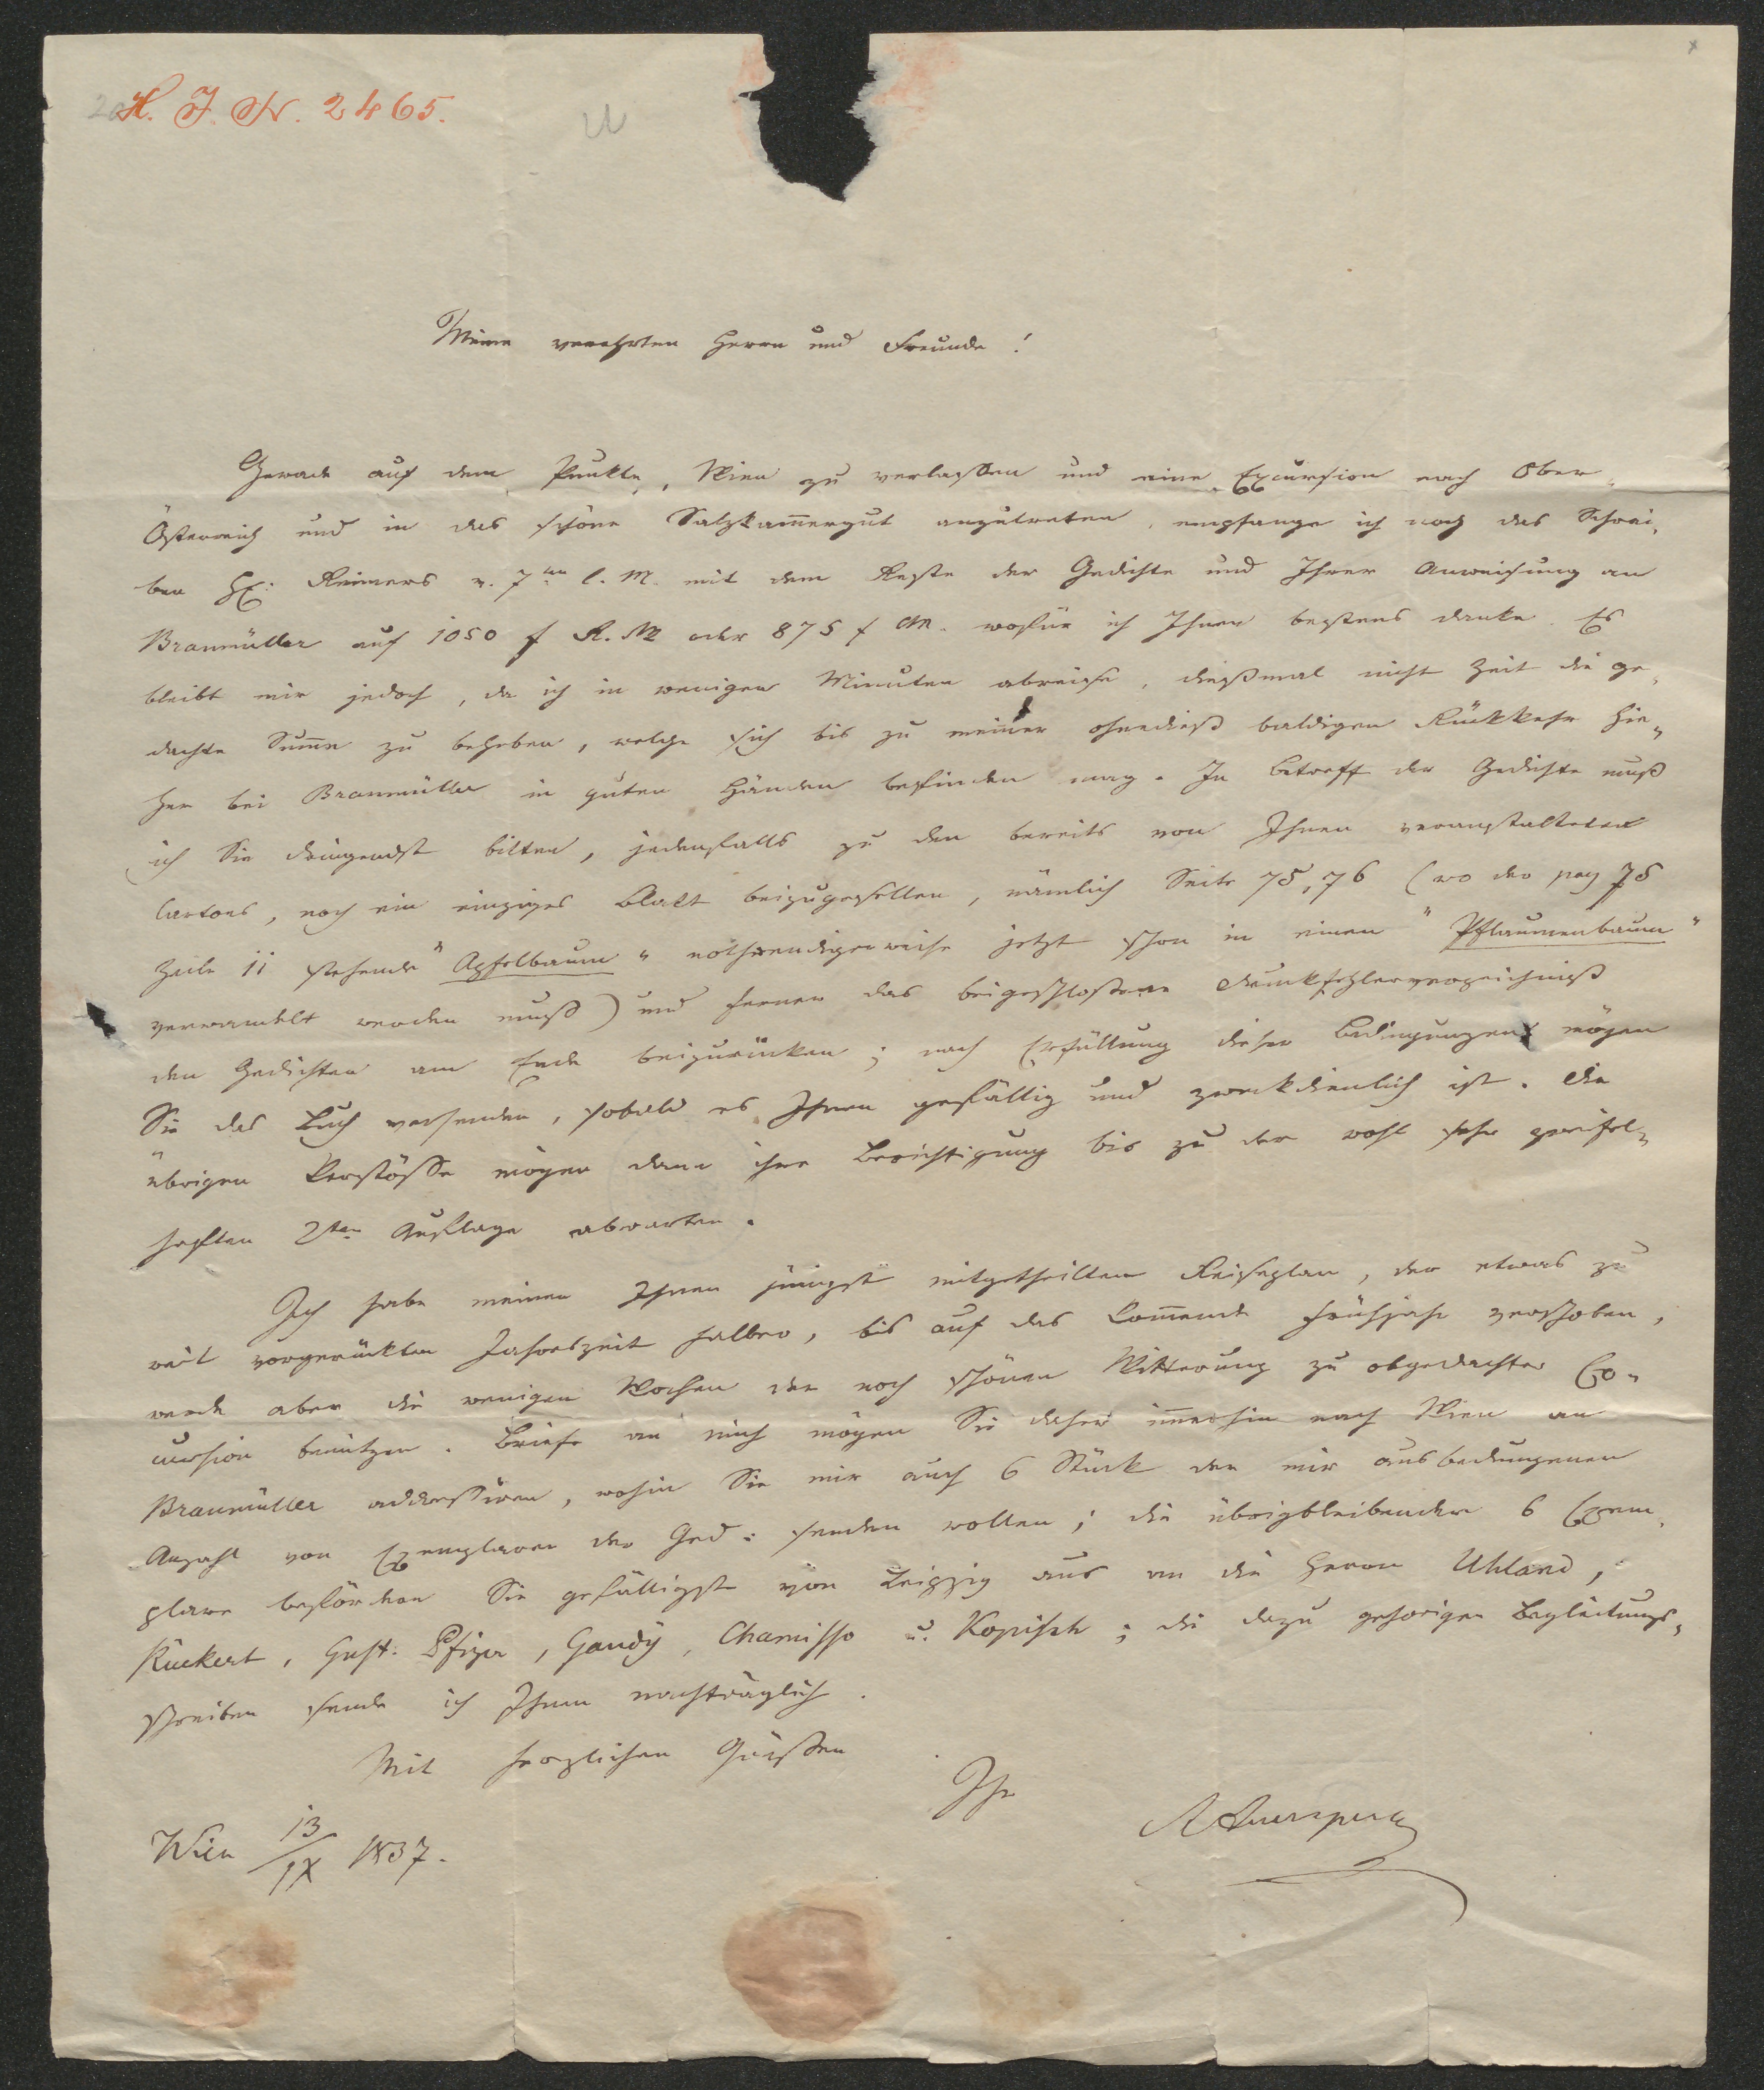 H. I. N. 2465.
Meine verehrten Herrn und Freunde!
Gerade auf dem Punkte, Wien zu verlassen und eine Excursion nach Ober-
Österreich und in das schöne Salzkam̅ergut anzutreten, empfange ich noch das Schrei-
ben H: Reimers v. 7ten l. M. mit dem Reste der Gedichte und Ihrer Anweisung an
Braumüller auf 1050 f R. M oder 875 f CM. wofür ich Ihnen bestens danke. Es
bleibt mir jedoch, da ich in wenigen Minuten abreise, dießmal nicht Zeit die ge-
dachte Sum̅e zu beheben, welche sich bis zu meiner ohnedieß baldigen Rückkehr hie-
her bei Braumüller in guten Händen befinden mag. In Betreff der Gedichte muß
ich Sie dringendst bitten, jedenfalls zu den bereits von Ihnen veranstalteten
Cartons, noch ein einziges Blatt beizugesellen, nämlich Seite 75, 76 (wo der pag 75
Zeile 11 stehende "Apfelbaum" nothwendigerweise jetzt schon in einen "Pflaumenbaum"
verwandelt werden muß) und ferner das beigeschlossene Druckfehlerverzeichniß
den Gedichten am Ende beizurücken; nach Erfüllung dieser Bedingungen mögen
Sie das Buch versenden, sobald es Ihnen gefällig und zweckdienlich ist. Die
übrigen Verstösse mögen dann ihre Berichtigung bis zu der wohl sehr zweifel-
haften 2ten Auflage abwarten.
Ich habe meinen Ihnen jüngst mitgetheilten Reiseplan, der etwas zu
weit vorgerückten Jahreszeit halber, bis auf das kom̅ende Frühjahr verschoben,
werde aber die wenigen Wochen der noch schönen Witterung zu obgedachter Ex-
cursion benützen. Briefe an mich mögen Sie daher im̅erhin nach Wien an
Braumüller addressiren, wohin Sie mir auch 6 Stück der mir ausbedungenen
Anzahl von Exemplaren der Ged: senden wollen; die übrigbleibenden 6 Exem-
plare befördern Sie gefälligst von Leipzig aus an die Herrn Uhland,
Rückert, Gust. Pfizer, Gaudy, Chamisso u. Kopisch; die dazu gehörigen Begleitungs-
schreiben sende ich Ihnen nachträglich.
Mit herzlichen Grüssen
Ihr
AAuersperg
Wien 13/IX 1837.